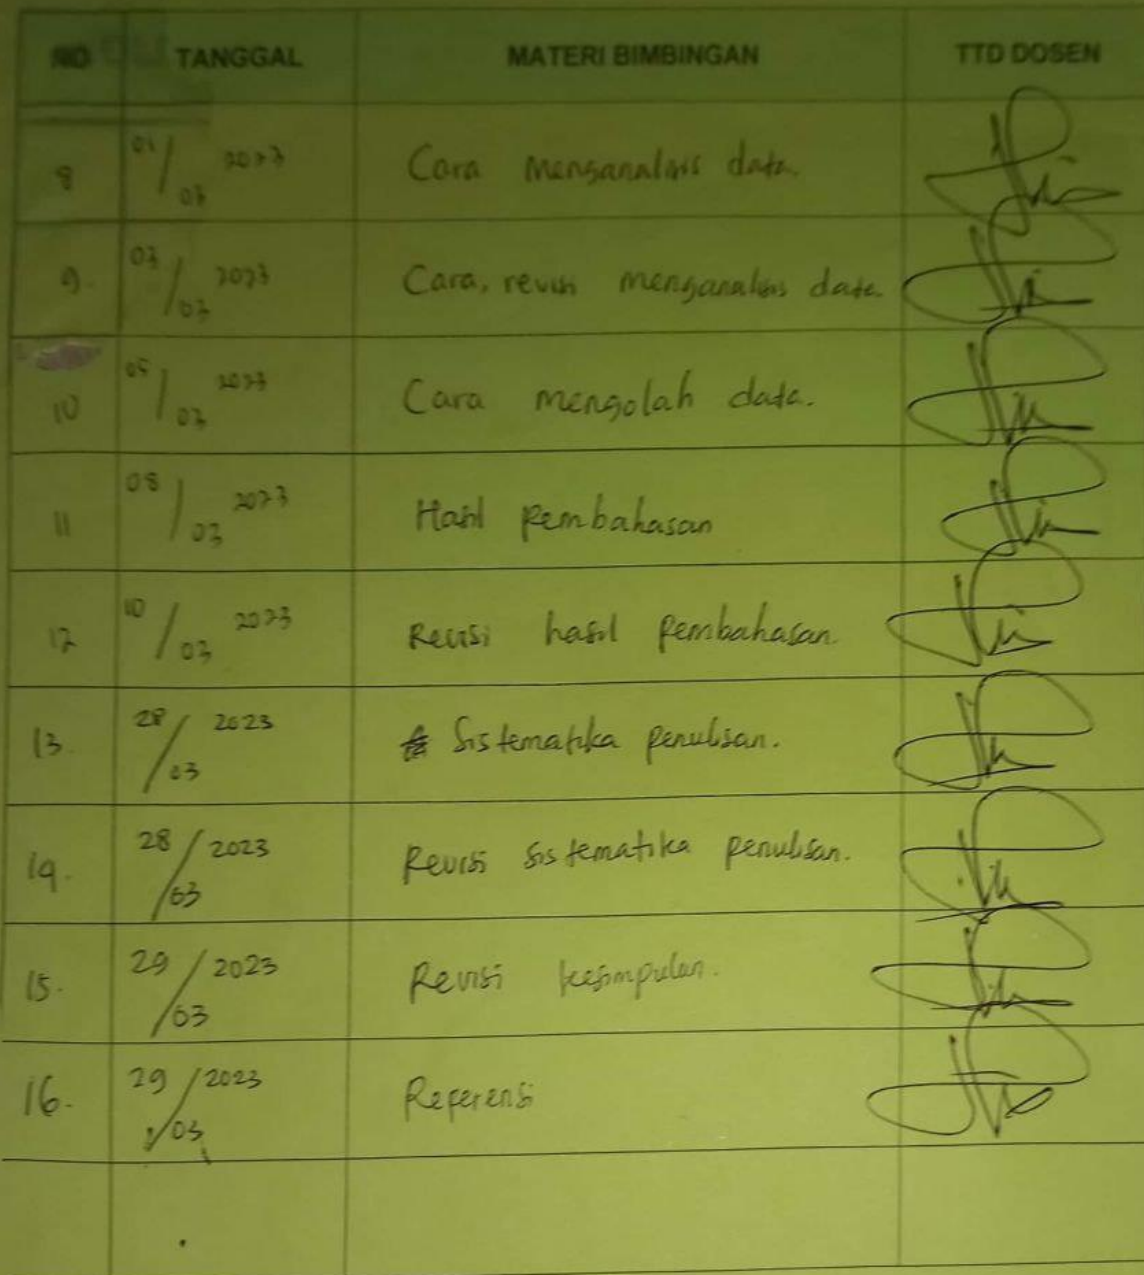 NO TANGGAL MATERI BIMBINGAN TTD DOSEN
8 01/03 2023 Cara menganalisis data.
9. 03/03 2023 Cara, revisi menganalisis data
10 05/03 2023 Cara mengolah data.
11 08/03 2023 Hasil pembahasan
12 10/03 2023 Revisi hasil pembahasan.
13. 28/03 2023 Sistematika penulisan.
14. 28/03 2023 Revisi sistematika penulisan.
15. 29/03 2023 Revisi kesimpulan.
16. 29/03 2023 Referensi